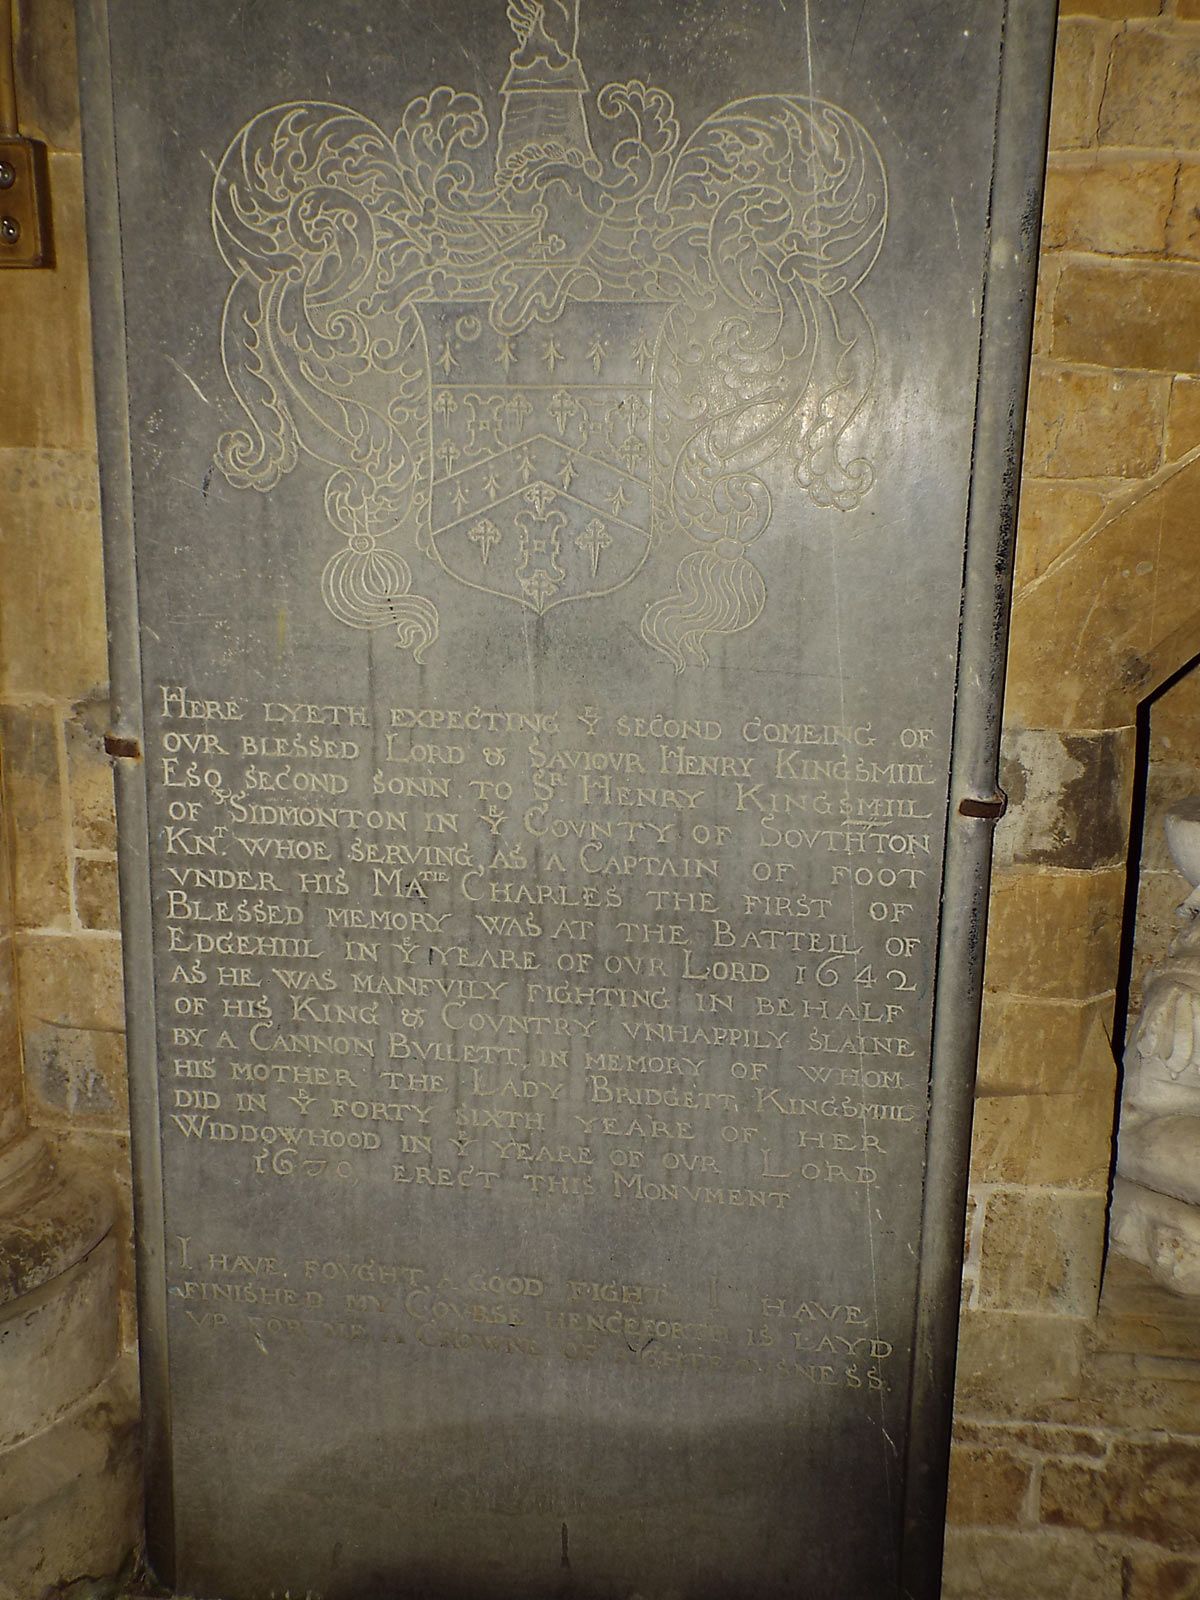 HERE LYETH EXPECTING Yᴱ SECOND COMEING OF
OVR BLESSED LORD & SAVIOVR HENRY KINGSMILL
ESQ. SECOND SONN TO Sᴿ HENRY KINGSMILL
OF SIDMONTON IN Yᴱ COVNTY OF SOVTHTON
KNᵀ. WHOE SERVING AS A CAPTAIN OF FOOT
VNDER HIS MAᵀᴵᴱ CHARLES THE FIRST OF
BLESSED MEMORY WAS AT THE BATTELL OF
EDGEHILL IN Yᴱ YEARE OF OVR LORD 1642
AS HE WAS MANFVLLY FIGHTING IN BEHALF
OF HIS KING & COVNTRY VNHAPPILY SLAINE
BY A CANNON BVLLETT, IN MEMORY OF WHOM
HIS MOTHER THE LADY BRIDGETT KINGSMILL
DID IN Yᴱ FORTY SIXTH YEARE OF HER
WIDDOWHOOD IN Yᴱ YEARE OF OVR LORD
1670 ERECT THIS MONVMENT
I HAVE FOVGHT A GOOD FIGHT I HAVE
FINISHED MY COVRSE HENCEFORTH IS LAYD
VP FOR ME A CROWNE OF RIGHTEOUSNESS.